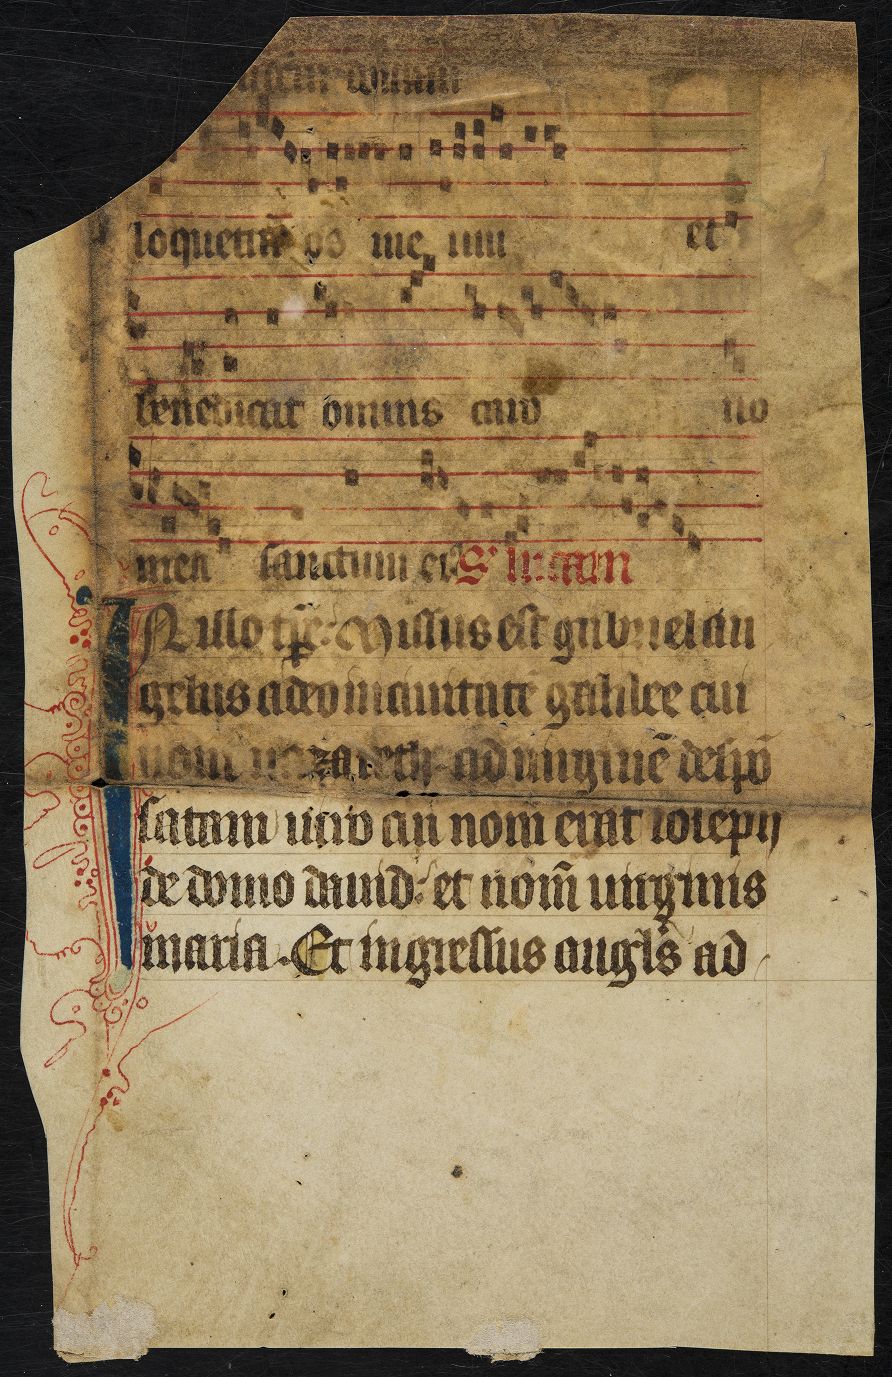 loquetur os me um et
benedicat omnis caro no
mea sanctum ei' S' lucam
IN illo tp̄r̄e: Missus est gabriel an
gelus a deo in ciuitatē galilee cui
nom̄ nazareth ad uirginē despō
satam uiro cui nom̄ erat ioseph
de domo dauid: et nom̄ uirginis
maria. Et ingressus angl's ad